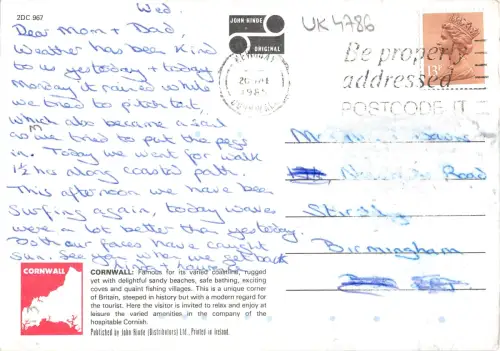 2DC 967
Wed.
Dear Mom + Dad,
Weather has been kind
to us yesterday + today
Monday it rained while
we tried to pitch tent,
which also became a sail
as we tried to put the pegs
in. Today we went for walk
1½ hrs along coastal path.
This afternoon we have been
surfing again, today waves
were a lot better than yesterday.
Both our faces have caught
sun. See you when we get back
JOHN HINDE
ORIGINAL
UK 4786
NEWQUAY
CORNWALL
Be properly
addressed
POSTCODE IT
13
Road
Stirchley
Birmingham
CORNWALL
CORNWALL: Famous for its varied coastline, rugged
yet with delightful sandy beaches, safe bathing, exciting
coves and quaint fishing villages. This is a unique corner
of Britain, steeped in history but with a modern regard for
the tourist. Here the visitor is invited to relax and enjoy at
leisure the varied amenities in the company of the
hospitable Cornish.
Published by John Hinde (Distributors) Ltd., Printed in Ireland.